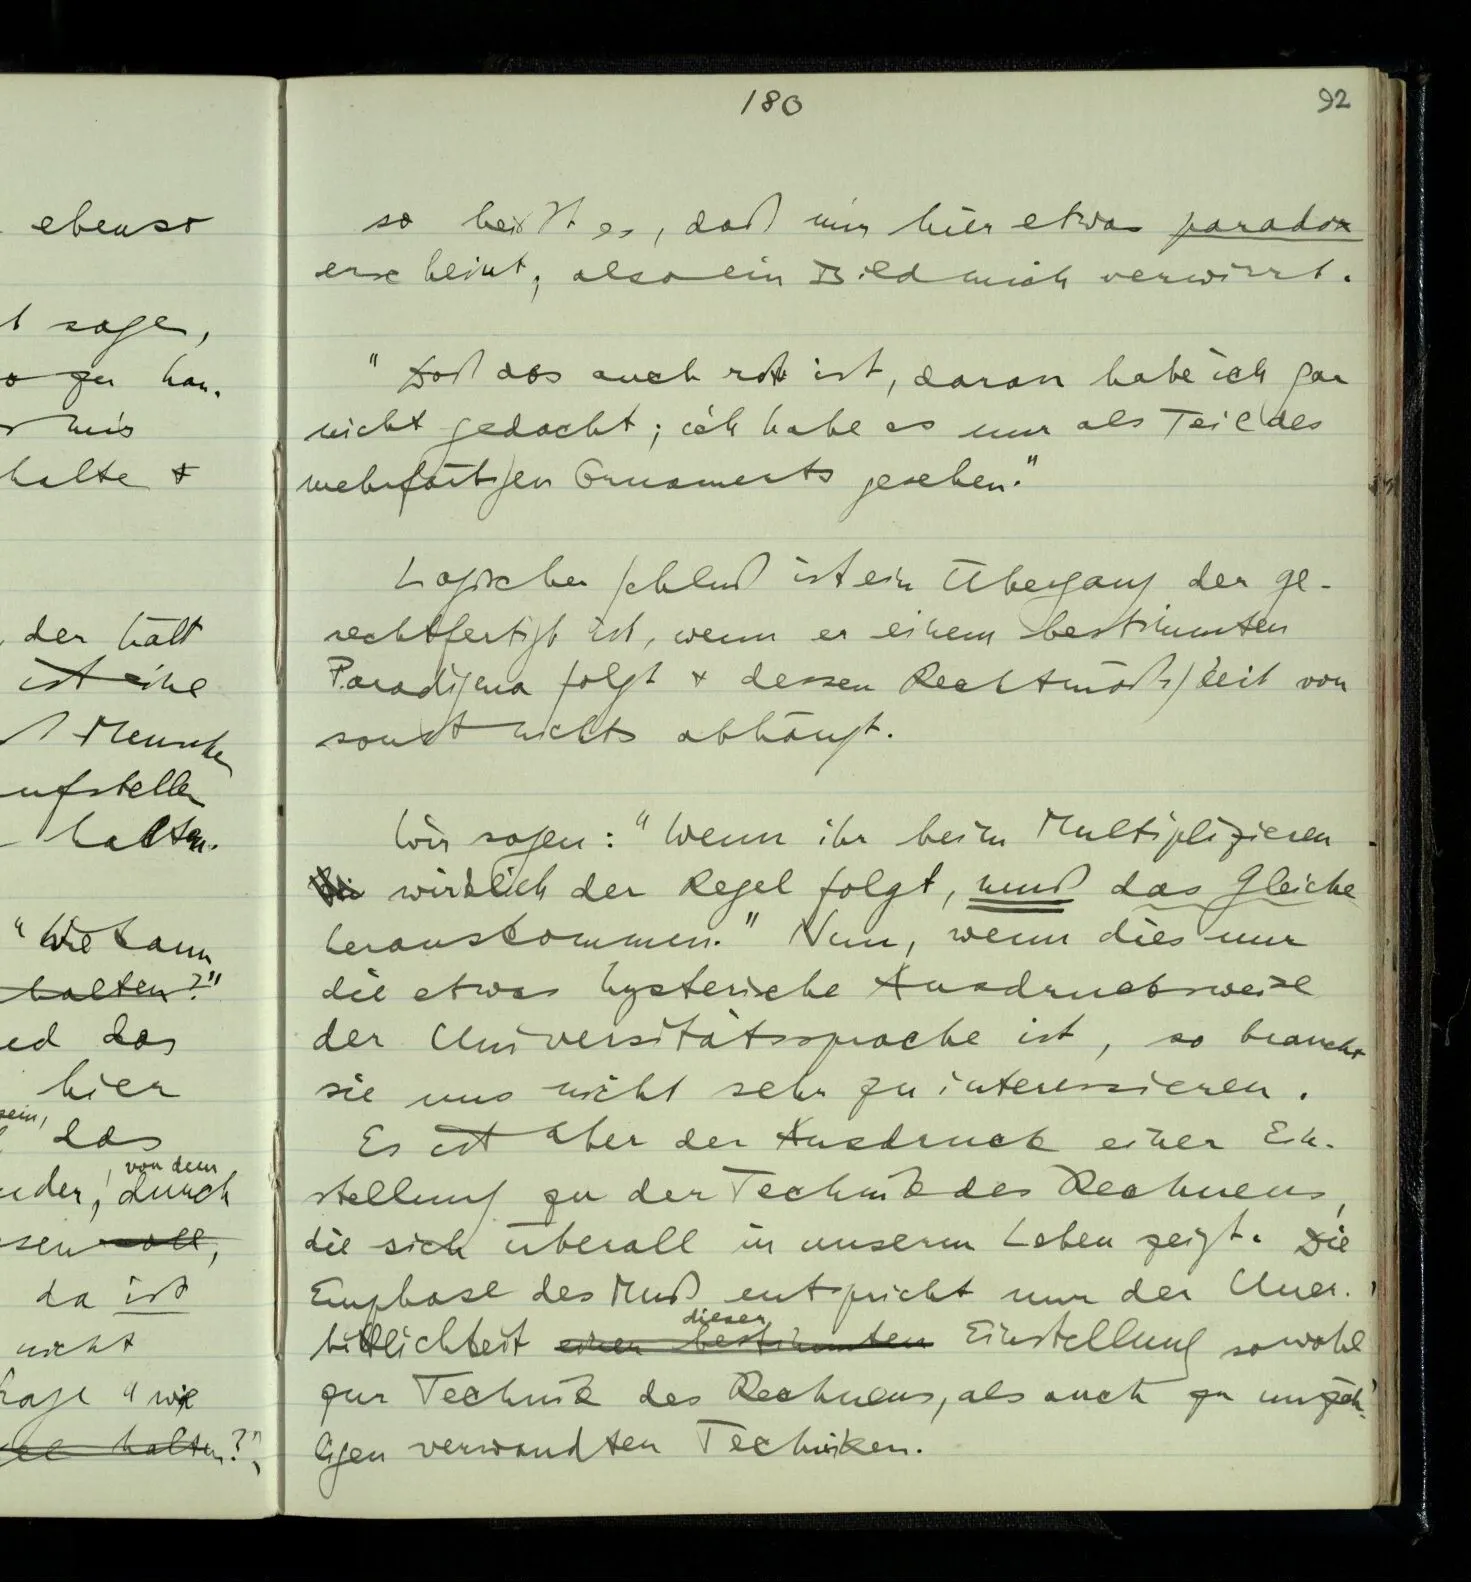 180
92
ebenso
sage,
zu han-
mir
halte &
der hält
ist eine
Mensch
aufstellen
halten.
"Wie kann
halten?"
das
hier
sein,
das
von dem
durch
soll,
da ist
nicht
"wie
halten?",
so heißt es, daß mir hier etwas paradox
erscheint, also ein Bild mich verwirrt.
"Daß das auch rot ist, daran habe ich gar
nicht gedacht; ich habe es nur als Teil des
mehrfärbigen Ornaments gesehen."
Logischer Schluß ist ein Übergang der ge-
rechtfertigt ist, wenn er einem bestimmten
Paradigma folgt & dessen Rechtmäßigkeit von
sonst nichts abhängt.
Wir sagen: "Wenn ihr beim Multiplizieren
wirklich der Regel folgt, muß das Gleiche
herauskommen." Nun, wenn dies nur
die etwas hysterische Ausdrucksweise
der Universitätssprache ist, so braucht
sie uns nicht sehr zu interessieren.
Es ist aber der Ausdruck einer Ein-
stellung zu der Technik des Rechnens,
die sich überall in unserm Leben zeigt. Die
Emphase des Muß entspricht nur der Uner-
dieser
bittlichkeit einer bestimmten Einstellung sowohl
zur Technik des Rechnens, als auch zu unzäh-
ligen verwandten Techniken.